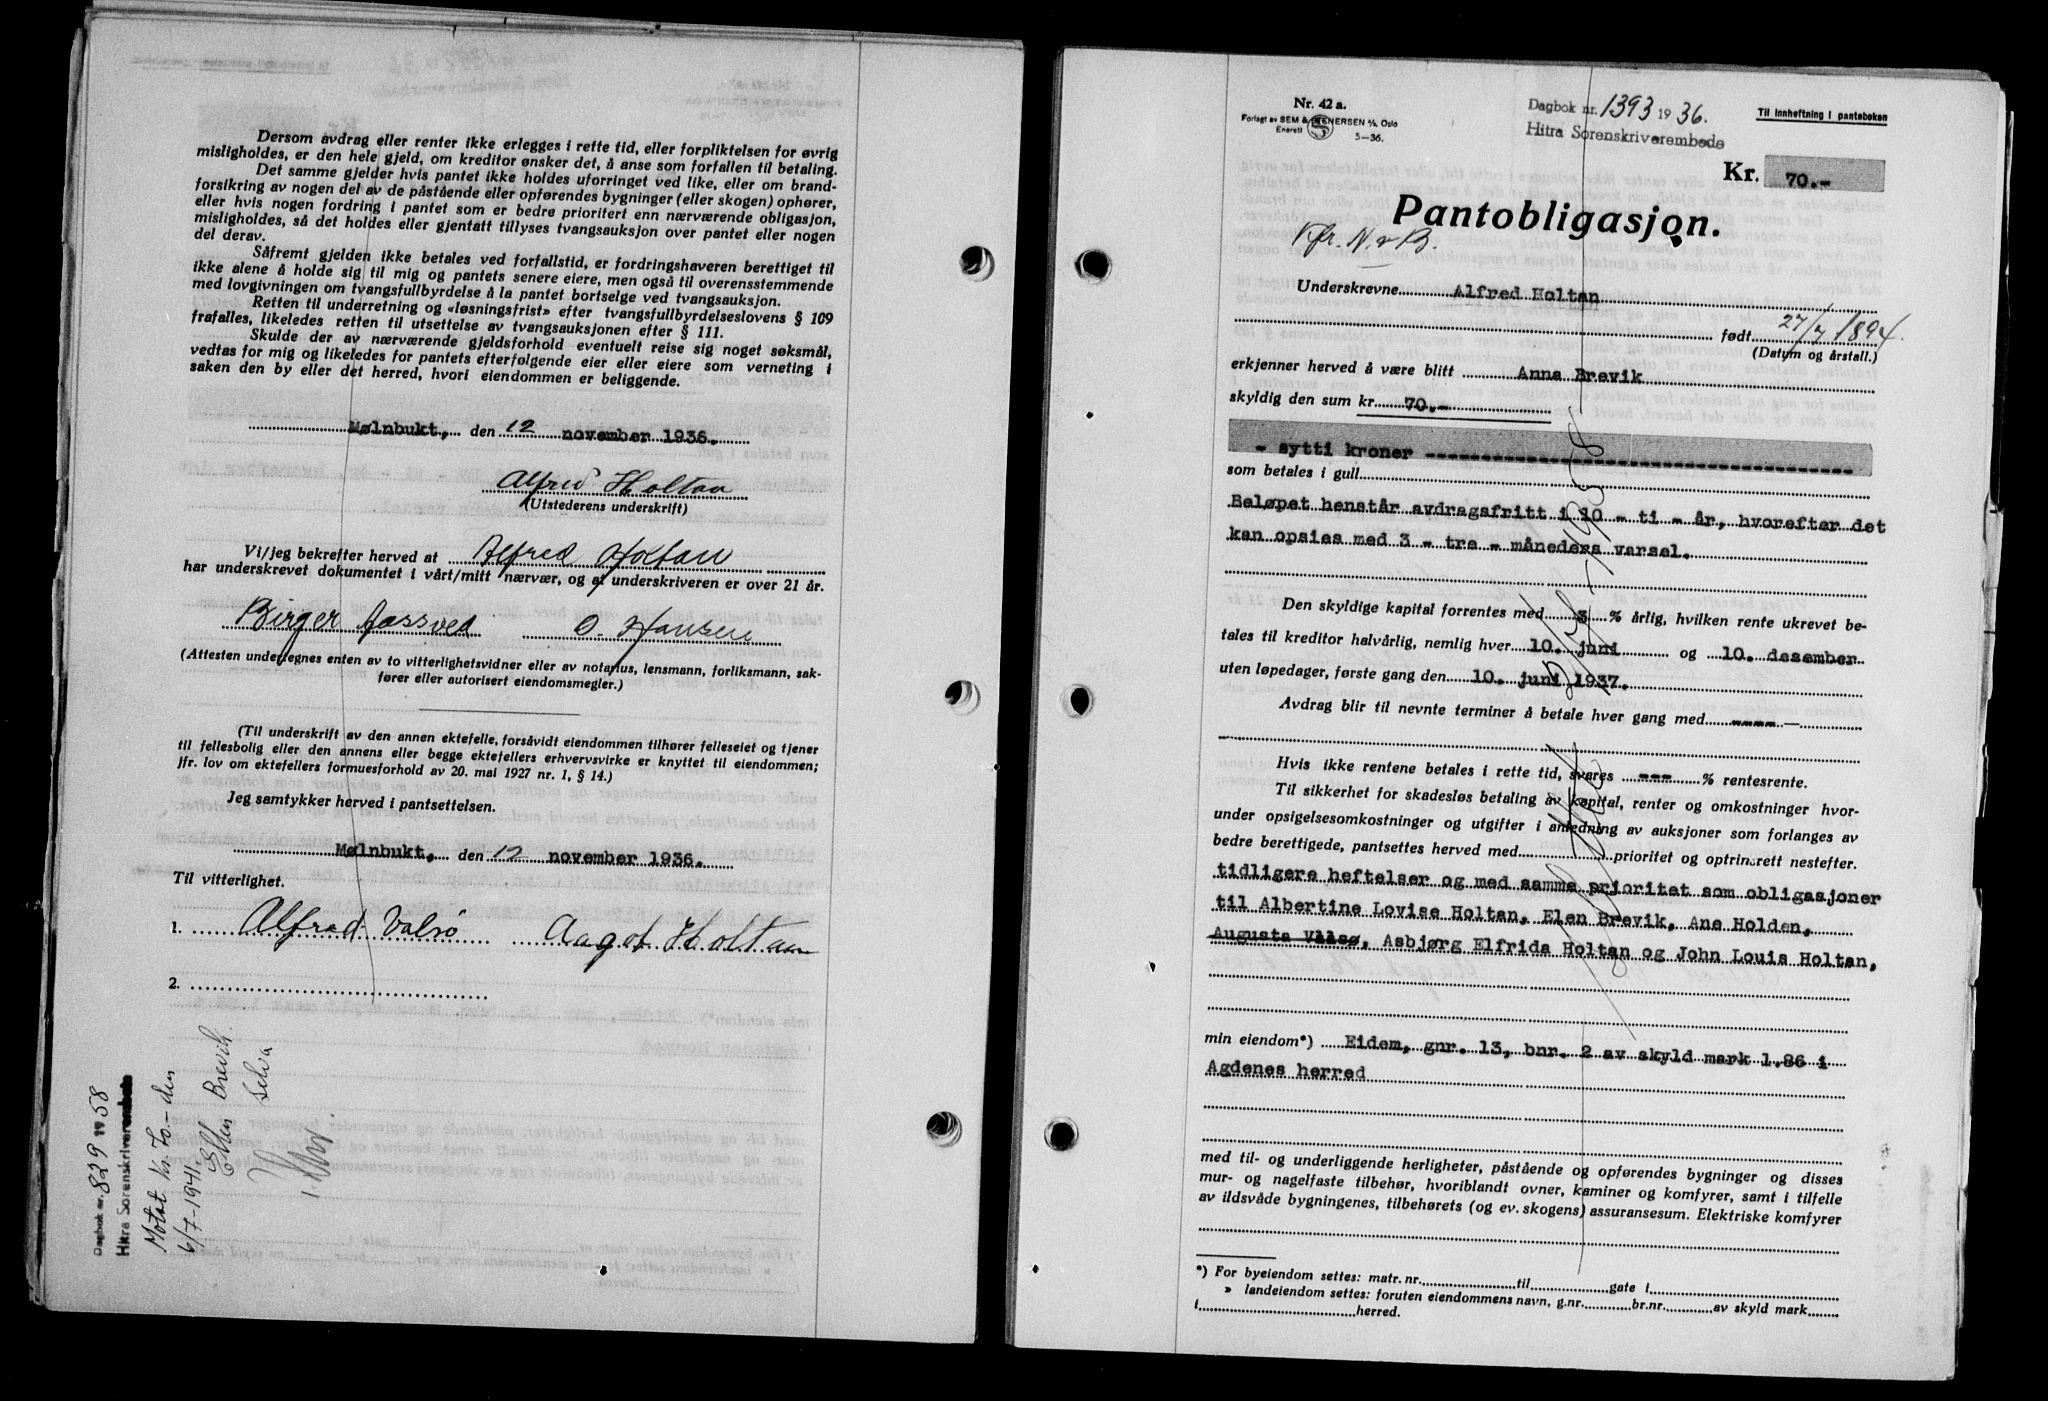 Dersom avdrag eller renter ikke erlegges i rette tid, eller forpliktelsen for øvrig
misligholdes, er den hele gjeld, om kreditor ønsker det, å anse som forfallen til betaling.
Det samme gjelder hvis pantet ikke holdes uforringet ved like, eller om brand-
forsikring av nogen del av de påstående eller opførendes bygninger (eller skogen) ophører,
eller hvis nogen fordring i pantet som er bedre prioritert enn nærværende obligasjon,
misligholdes, så det holdes eller gjentatt tillyses tvangsauksjon over pantet eller nogen
del derav.
Såfremt gjelden ikke betales ved forfallstid, er fordringshaveren berettiget til
ikke alene å holde sig til mig og pantets senere eiere, men også til overensstemmende
med lovgivningen om tvangsfullbyrdelse å la pantet bortselge ved tvangsauksjon.
Retten til underretning og «løsningsfrist» efter tvangsfullbyrdelseslovens § 109
frafalles, likeledes retten til utsettelse av tvangsauksjonen efter § 111.
Skulde der av nærværende gjeldsforhold eventuelt reise sig noget søksmål,
vedtas for mig og likeledes for pantets efterfølgende eier eller eiere som verneting i
saken den by eller det herred, hvori eiendommen er beliggende.
Mølnbukt, den 12 november 1936.
Alfred Holtan
(Utstederens underskrift)
Vi/jeg bekrefter herved at Alfred Holtan
har underskrevet dokumentet i vårt/mitt nærvær, og at underskriveren er over 21 år.
Birger O. Hansen
(Attesten undertegnes enten av to vitterlighetsvidner eller av notarius, lensmann, forliksmann, sak-
fører eller autorisert eiendomsmegler.)
(Til underskrift av den annen ektefelle, forsåvidt eiendommen tilhører felleseiet og tjener
til fellesbolig eller den annens eller begge ektefellers erhvervsvirke er knyttet til eiendommen;
jfr. lov om ektefellers formuesforhold av 20. mai 1927 nr. 1, § 14.)
Jeg samtykker herved i pantsettelsen.
Mølnbukt, den 12 november 1936.
Til vitterlighet.
1. Alfred Valsø Aagot Holtan
2.
Dagbok nr. 829 1958
Hitra Sorenskriverembede
Motat Kr. 70.- den
6/7-1941.
Ellen Brevik
Selia
Nr. 42 a.
Forlagt av SEM & STENERSEN A/S, Oslo
Enerett 5-36.
Dagbok nr. 1393 1936.
Hitra Sorenskriverembede
Til innheftning i panteboken
Kr. 70.-
Pantobligasjon.
Kfr. N. v B.
Underskrevne Alfred Holtan
født 27/7 1894.
(Datum og årstall.)
erkjenner herved å være blitt Anna Brevik
skyldig den sum kr. 70.-
- sytti kroner -
som betales i gull.
Beløpet henstår avdragsfritt i 10 - ti - år, hvorefter det
kan opsies med 3 - tre - måneders varsel.
Den skyldige kapital forrentes med 3 % årlig, hvilken rente ukrevet be-
tales til kreditor halvårlig, nemlig hver 10. juni og 10. desember
uten løpedager, første gang den 10. juni 1937.
Avdrag blir til nevnte terminer å betale hver gang med ----
Hvis ikke rentene betales i rette tid, svares --- % rentesrente.
Til sikkerhet for skadesløs betaling av kapital, renter og omkostninger hvor-
under opsigelsesomkostninger og utgifter i anledning av auksjoner som forlanges av
bedre berettigede, pantsettes herved med prioritet og optrinsrett nestefter.
tidligere heftelser og med samme prioritet som obligasjoner
til Albertine Lovise Holtan, Elen Brevik, Ane Holden,
Augusta Valsø, Asbjørg Elfrida Holtan og John Louis Holtan,
min eiendom*) Eidem, gnr. 13, bnr. 2 av skyld mark 1.86 i
Agdenes herred
med til- og underliggende herligheter, påstående og opførendes bygninger og disses
mur- og nagelfaste tilbehør, hvoriblandt ovner, kaminer og komfyrer, samt i tilfelle
av ildsvåde bygningenes, tilbehørets (og ev. skogens) assuransesum. Elektriske komfyrer
*) For byeiendom settes: matr. nr. til gate i
» landeiendom settes: foruten eiendommens navn, g.nr. br.nr. av skyld mark
i herred.